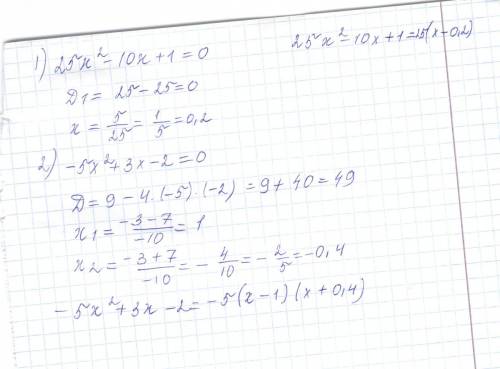 1) 25x² - 10x + 1 = 0
25x² - 10x + 1 = 25(x - 0,2)
D₁ = 25 - 25 = 0
x = 5/25 = 1/5 = 0,2
2) -5x² + 3x - 2 = 0
D = 9 - 4 · (-5) · (-2) = 9 + 40 = 49
x₁ = (-3 - 7)/(-10) = 1
x₂ = (-3 + 7)/(-10) = -4/10 = -2/5 = -0,4
-5x² + 3x - 2 = -5(x - 1)(x + 0,4)